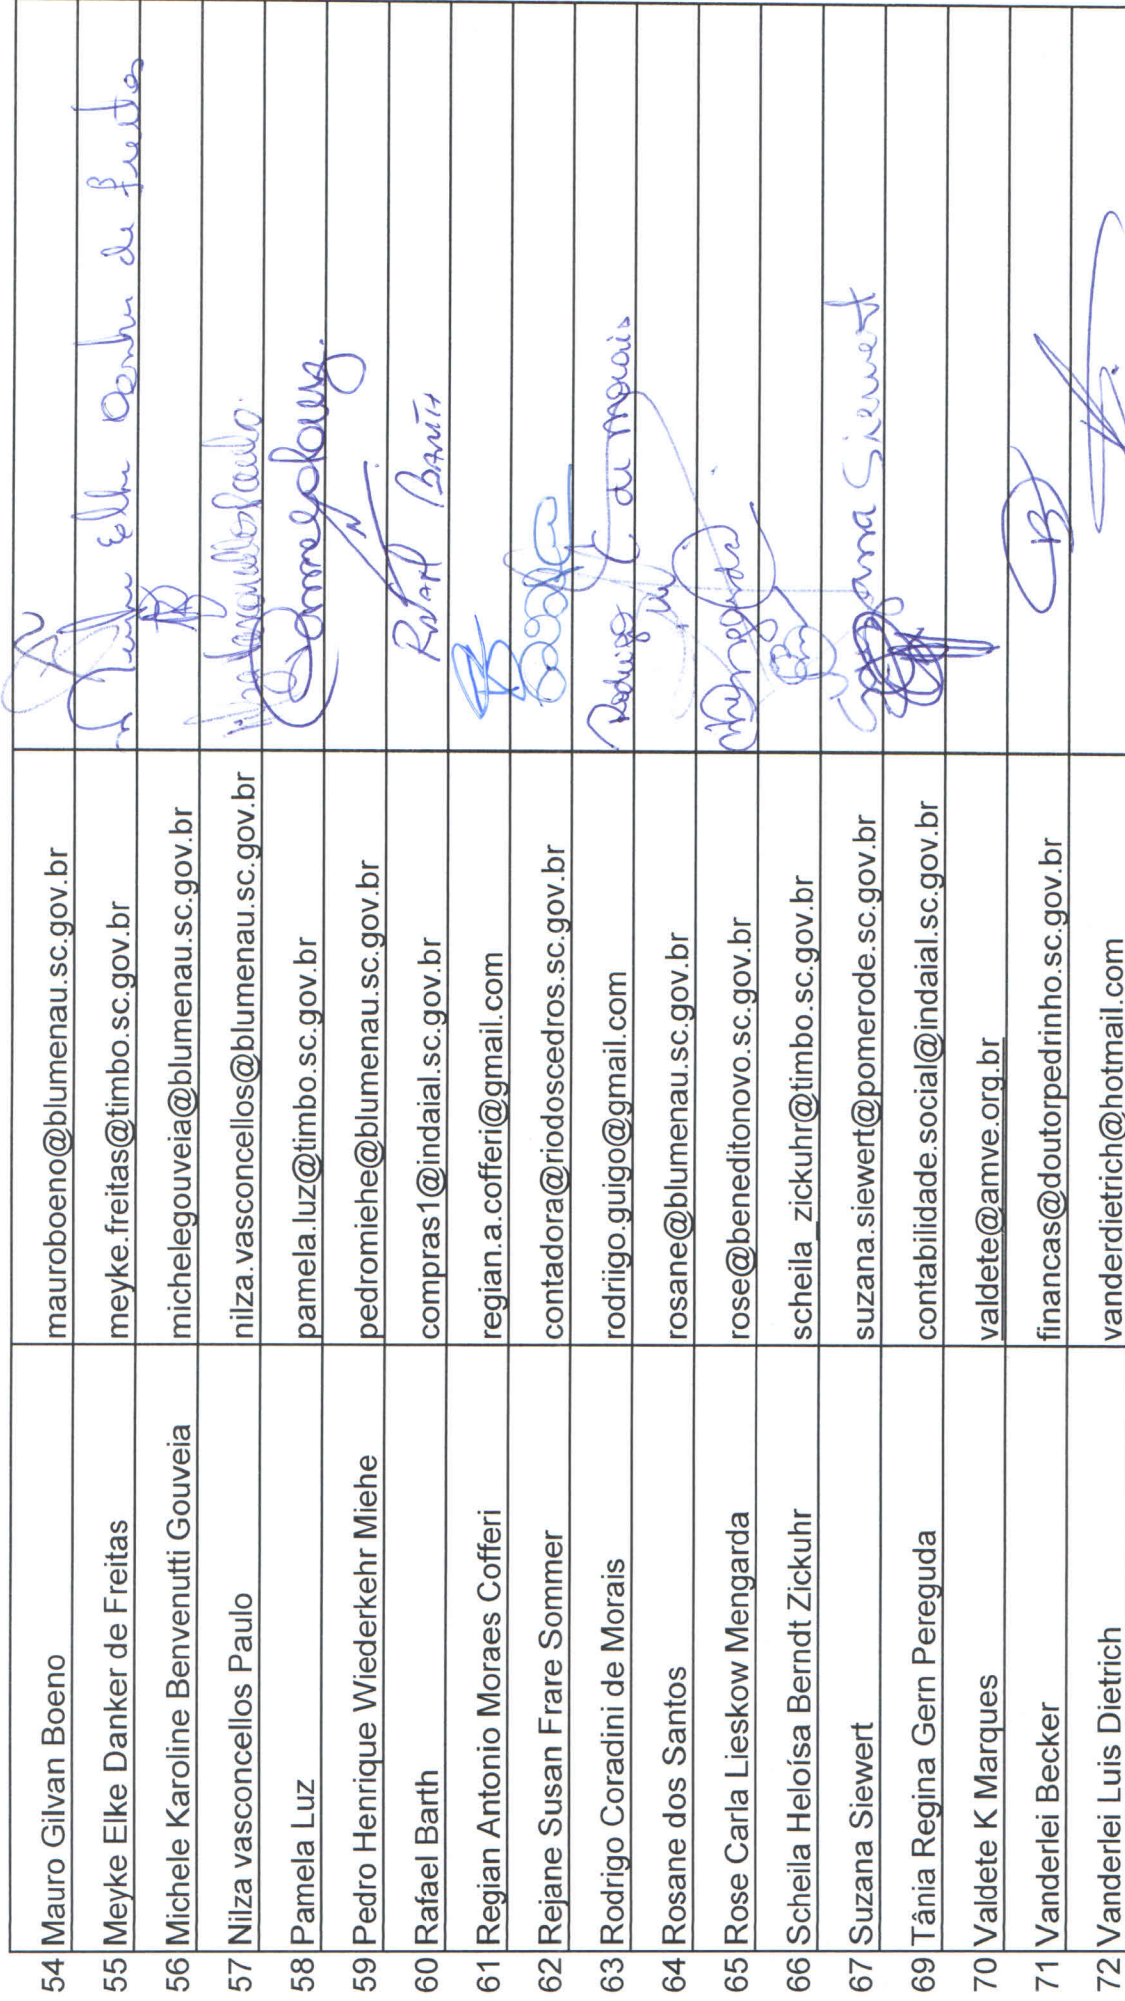 54 Mauro Gilvan Boeno mauroboeno@blumenau.sc.gov.br
55 Meyke Elke Danker de Freitas meyke.freitas@timbo.sc.gov.br Elke Danker de Freitas
56 Michele Karoline Benvenutti Gouveia michelegouveia@blumenau.sc.gov.br
57 Nilza vasconcellos Paulo nilza.vasconcellos@blumenau.sc.gov.br
58 Pamela Luz pamela.luz@timbo.sc.gov.br
59 Pedro Henrique Wiederkehr Miehe pedromiehe@blumenau.sc.gov.br
60 Rafael Barth compras1@indaial.sc.gov.br Rafael Barth
61 Regian Antonio Moraes Cofferi regian.a.cofferi@gmail.com
62 Rejane Susan Frare Sommer contadora@riodoscedros.sc.gov.br
63 Rodrigo Coradini de Morais rodriigo.guigo@gmail.com Rodrigo C. de Morais
64 Rosane dos Santos rosane@blumenau.sc.gov.br
65 Rose Carla Lieskow Mengarda rose@beneditonovo.sc.gov.br
66 Scheila Heloísa Berndt Zickuhr scheila_zickuhr@timbo.sc.gov.br
67 Suzana Siewert suzana.siewert@pomerode.sc.gov.br Suzana Siewert
69 Tânia Regina Gern Pereguda contabilidade.social@indaial.sc.gov.br
70 Valdete K Marques valdete@amve.org.br
71 Vanderlei Becker financas@doutorpedrinho.sc.gov.br
72 Vanderlei Luis Dietrich vanderdietrich@hotmail.com